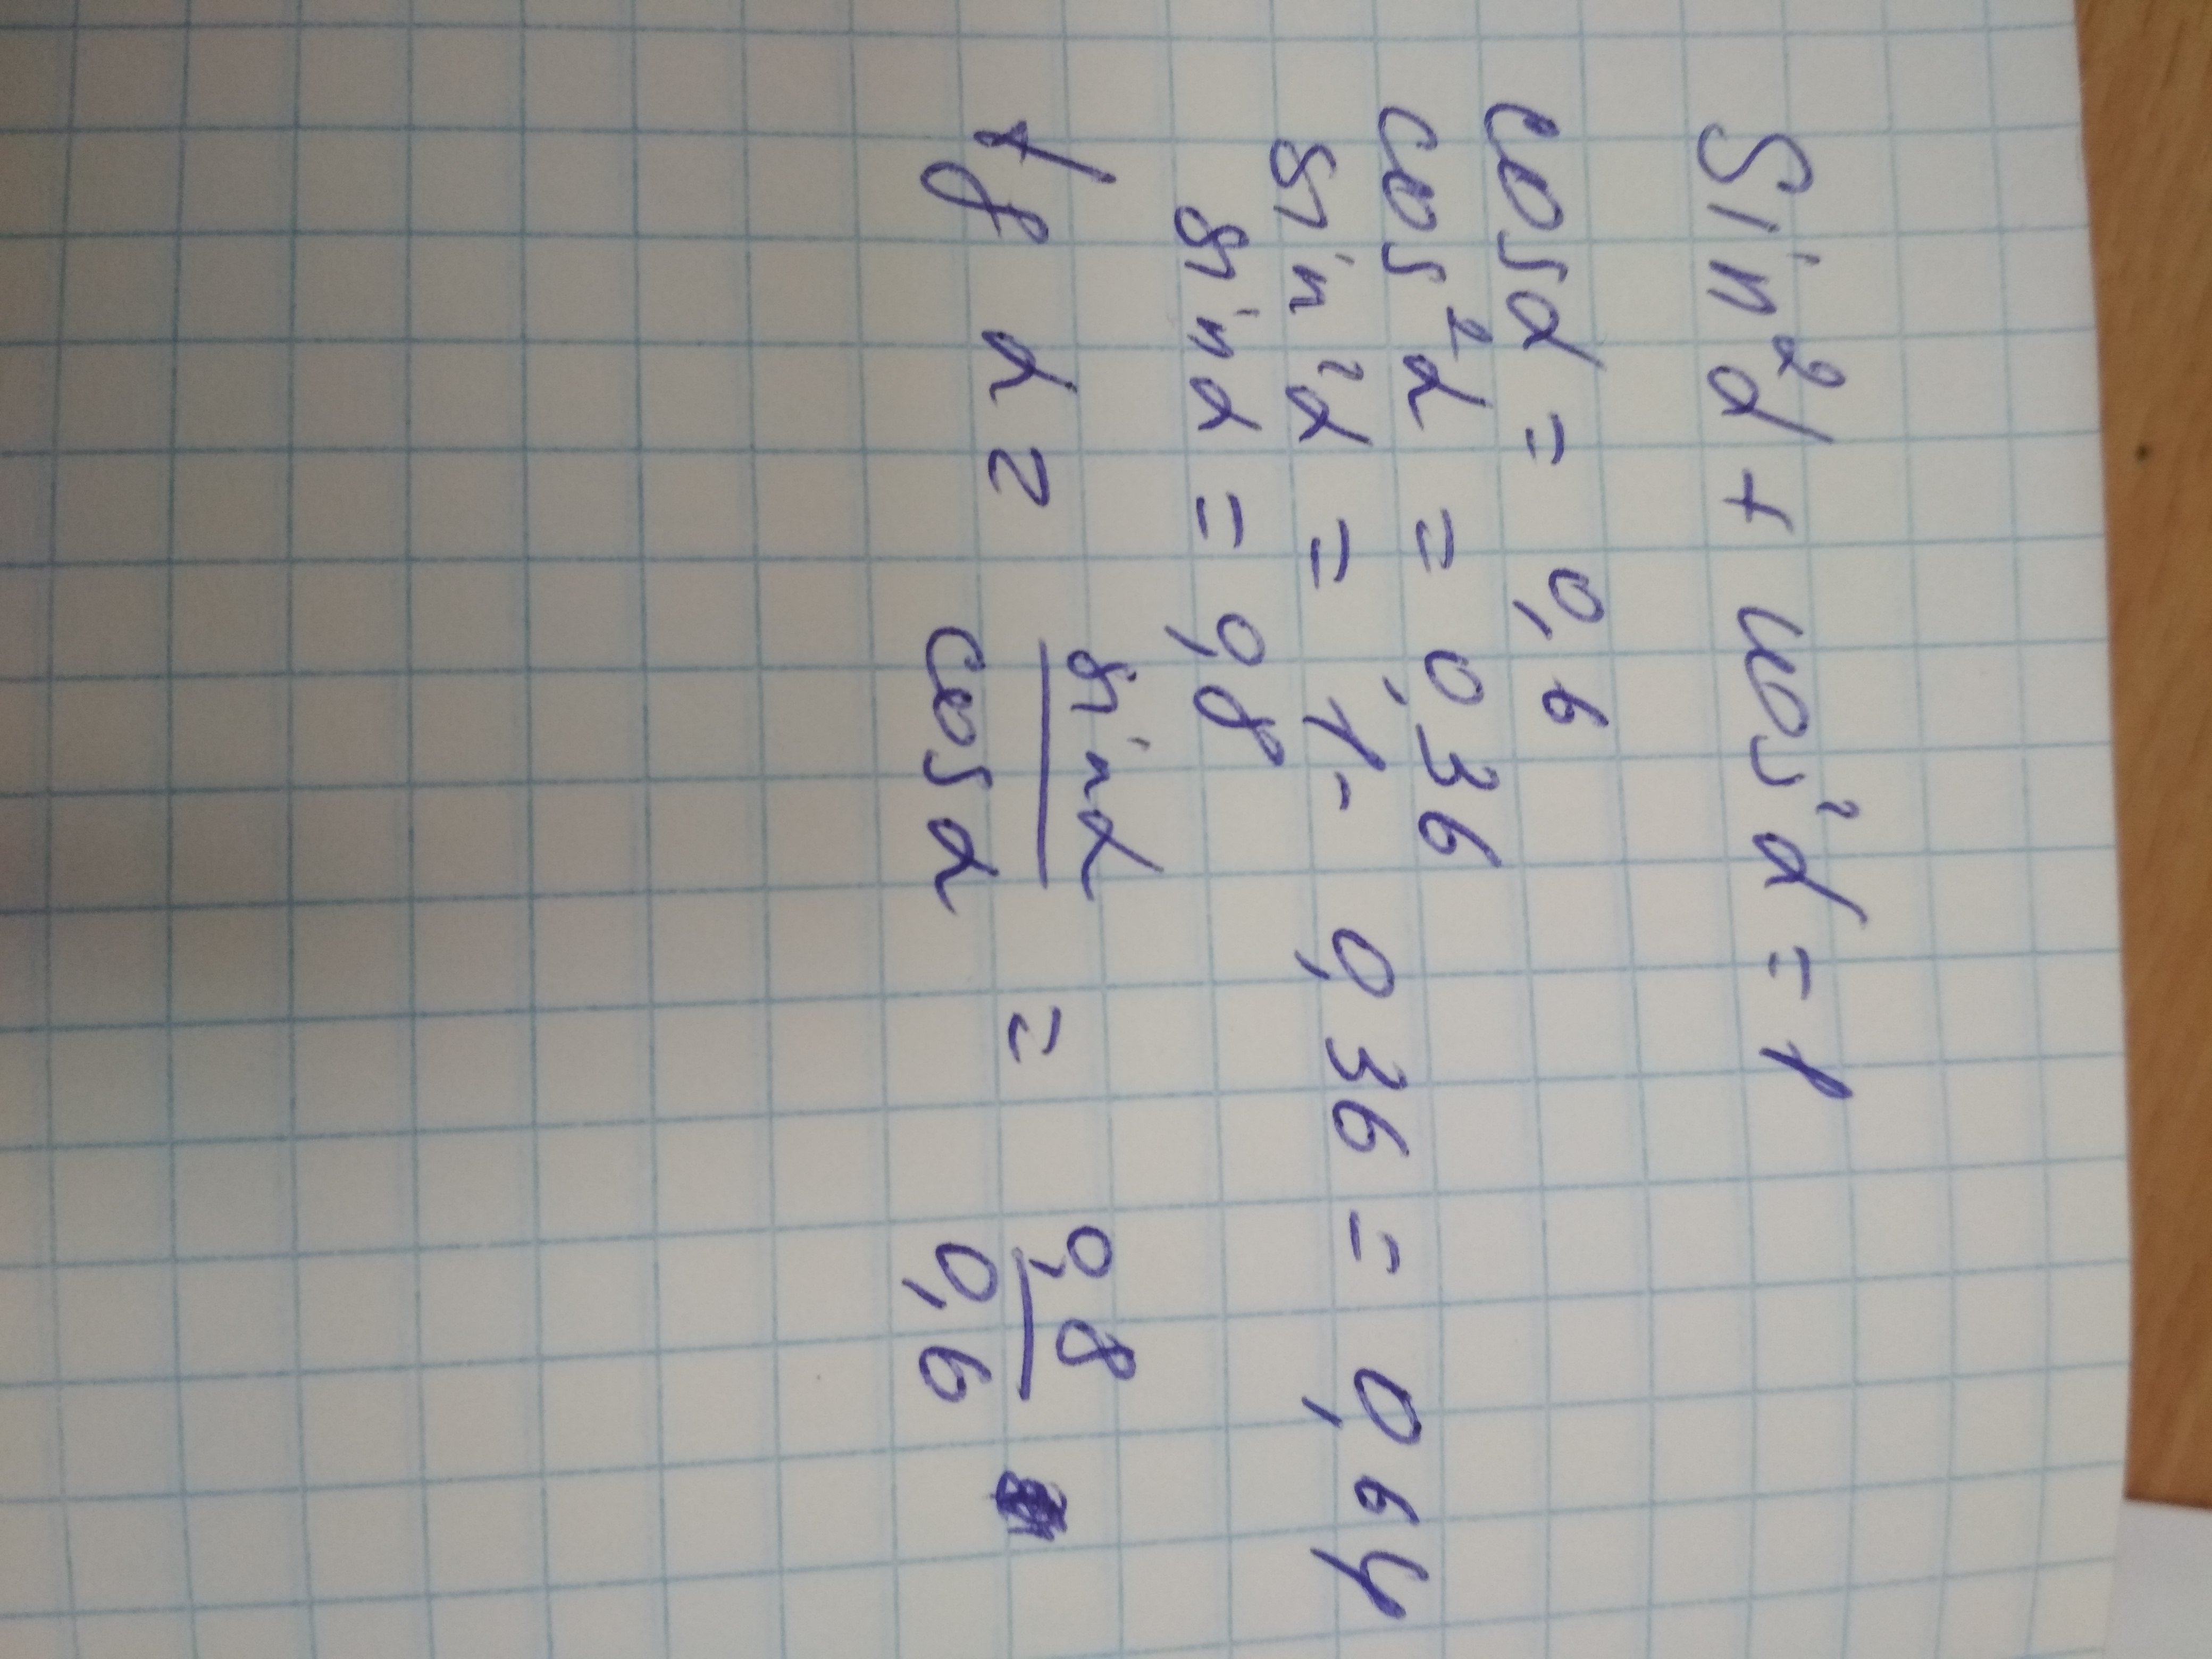 sin²α + cos²α = 1
cosα = 0,6
cos²α = 0,36
sin²α = 1 - 0,36 = 0,64
sinα = 0,8
tg α = sinα/cosα = 0,8/0,6